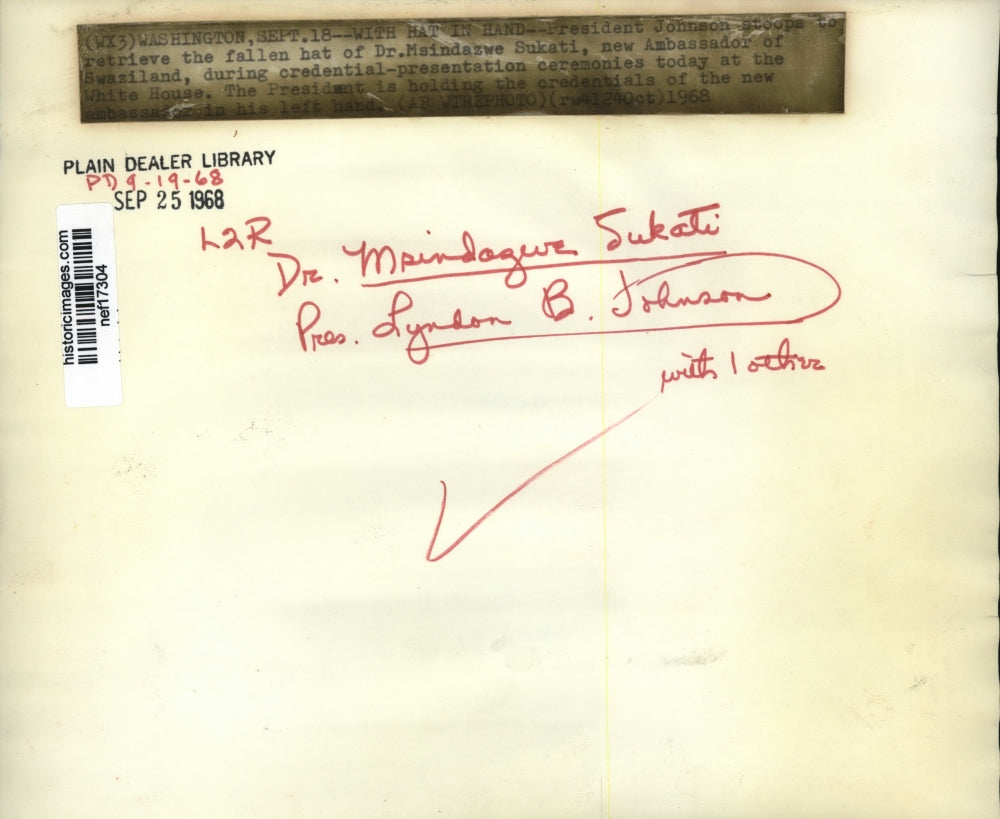 (WX3)WASHINGTON,SEPT.18--WITH HAT IN HAND--President Johnson stoops to
retrieve the fallen hat of Dr.Msindazwe Sukati, new Ambassador of
Swaziland, during credential-presentation ceremonies today at the
White House. The President is holding the credentials of the new
ambassador in his left hand. (AP WIREPHOTO)(rw41240ct)1968
PLAIN DEALER LIBRARY
PD 9-19-68
SEP 25 1968
historicimages.com
nef17304
L2R
Dr. Msindazwe Sukati
Pres. Lyndon B. Johnson
with 1 other